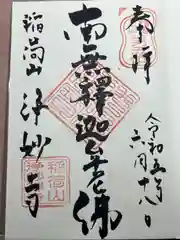 奉拝
令和五年
六月十八日
南無釋迦牟尼佛
稲荷山
浄妙寺
稲荷山